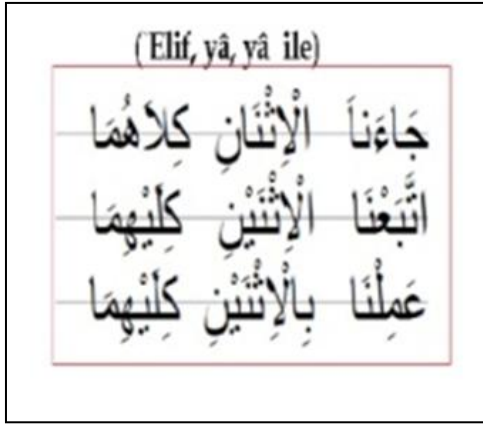 ( Elif, yâ, yâ ile)
جَاءَناَ الْاِثْنَانِ كِلاَهُمَا
اتَّبَعْنَا الْاِثْنَيْنِ كِلَيْهِمَا
عَمِلْنَا بِالْاِثْنَيْنِ كِلَيْهِمَا